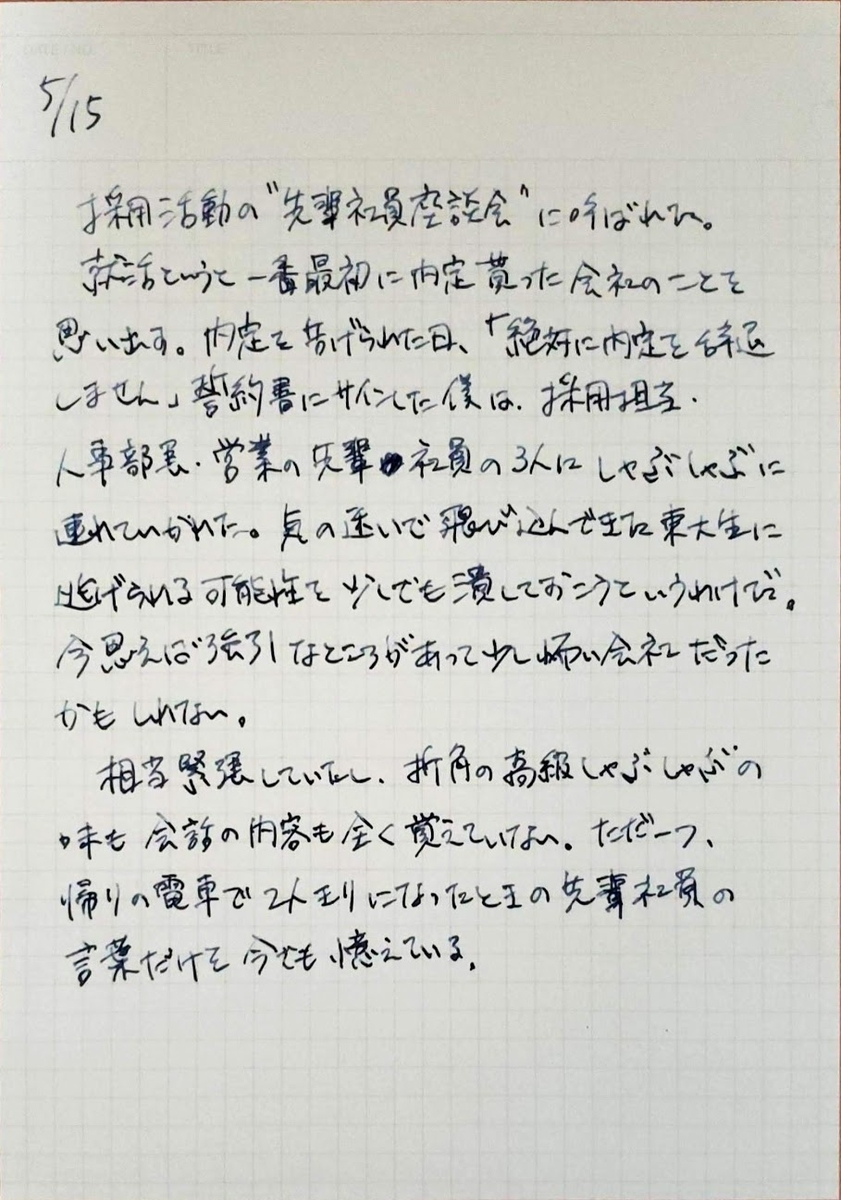 5/15
採用活動の"先輩社員座談会"に呼ばれた。
就活というと一番最初に内定貰った会社のことを
思い出す。内定を告げられた日、「絶対に内定を辞退
しません」誓約書にサインした僕は、採用担当・
人事部長・営業の先輩社員の3人にしゃぶしゃぶに
連れていかれた。気の迷いで飛び込んできた東大生に
逃げられる可能性を少しでも潰しておこうというわけだ。
今思えば強引なところがあって少し怖い会社だった
かもしれない。
相当緊張していたし、折角の高級しゃぶしゃぶの
味も会話の内容も全く覚えていない。ただ一つ、
帰りの電車で2人きりになったときの先輩社員の
言葉だけを今でも憶えている。